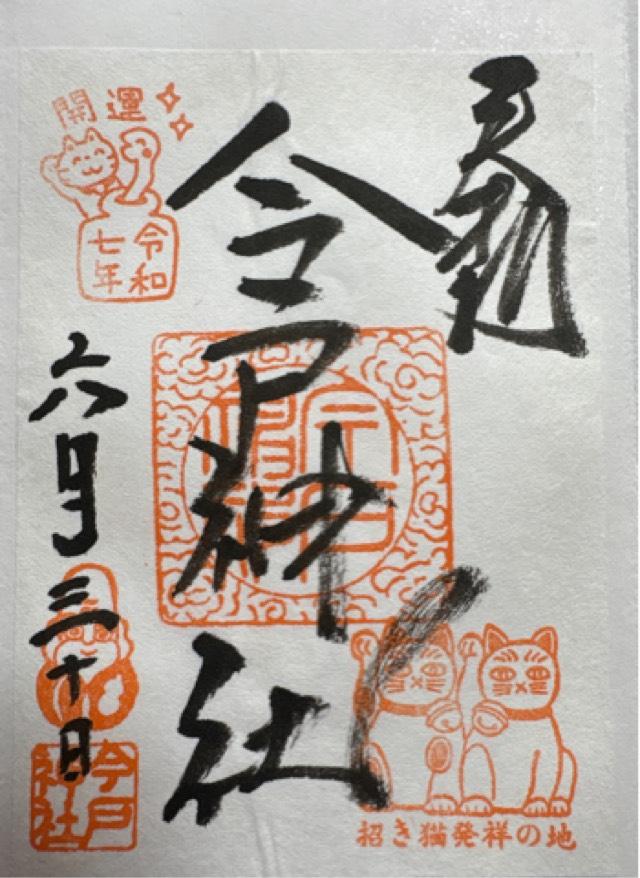 今戸神社
開運
令和
七年
六月三十日
今戸
神社
招き猫発祥の地